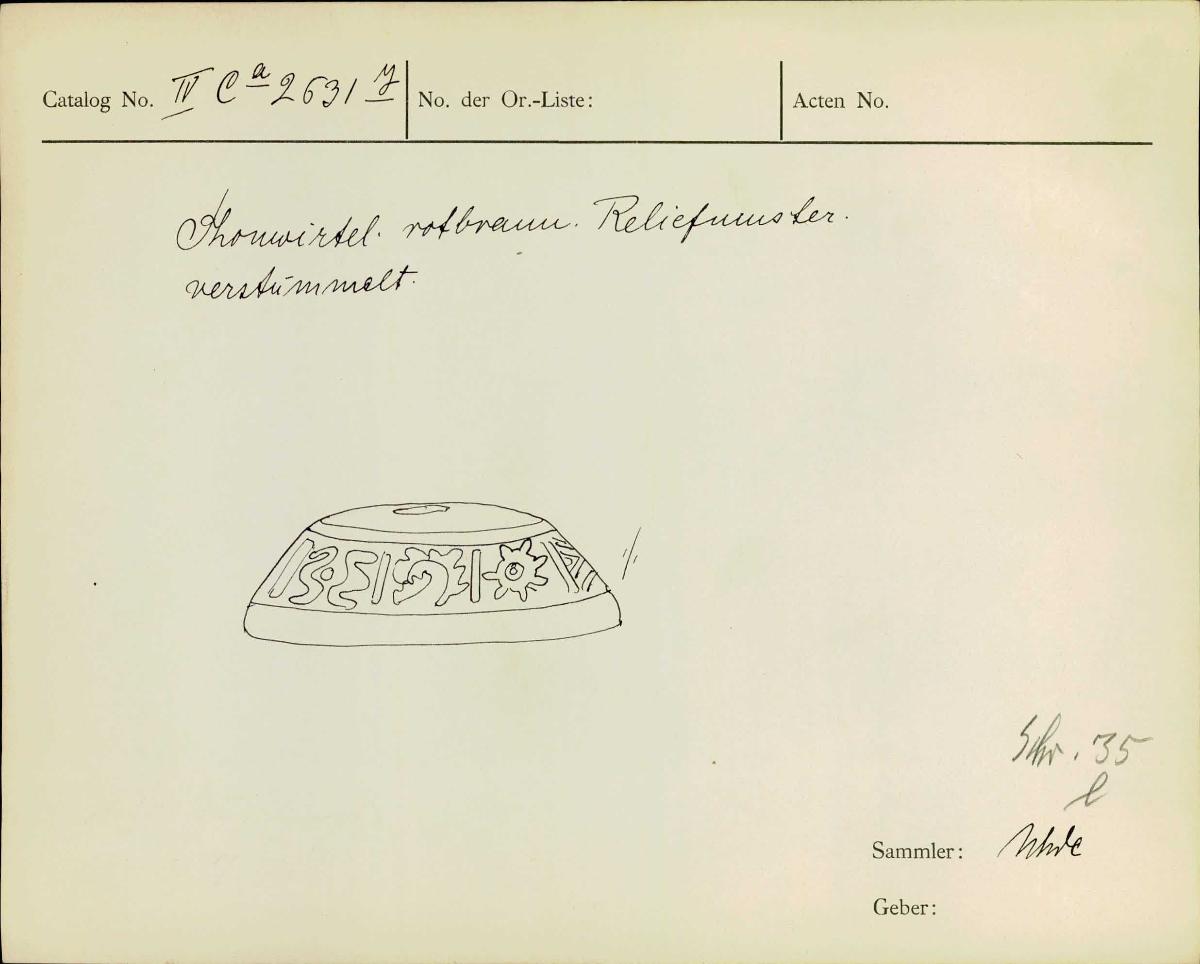 Catalog No. IV Ca 2631 y No. der Or.-Liste: Acten No.
Thonwirtel. rotbraun. Reliefmuster.
verstümmelt.
1/1
Schr. 35
l
Sammler: Uhde
Geber: